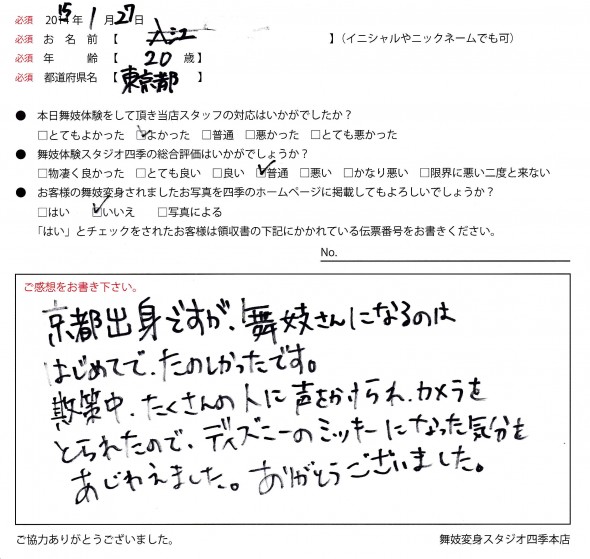 必須 2015年 1 月 27 日
必須 お 名 前 【 入江 】（イニシャルやニックネームでも可）
必須 年 齢 【 20 歳】
必須 都道府県名 【東京都 】
● 本日舞妓体験をして頂き当店スタッフの対応はいかがでしたか？
□とてもよかった ☑よかった □普通 □悪かった □とても悪かった
● 舞妓体験スタジオ四季の総合評価はいかがでしょうか？
□物凄く良かった □とても良い □良い ☑普通 □悪い □かなり悪い □限界に悪い二度と来ない
● お客様の舞妓変身されましたお写真を四季のホームページに掲載してもよろしいでしょうか？
□はい ☑いいえ □写真による
「はい」とチェックをされたお客様は領収書の下記にかかれている伝票番号をお書きください。
No.
ご感想をお書き下さい。
京都出身ですが、舞妓さんになるのは
はじめてで、たのしかったです。
散策中、たくさんの人に声をかけられ、カメラを
とられたので、ディズニーのミッキーになった気分を
あじわえました。ありがとうございました。
ご協力ありがとうございました。
舞妓変身スタジオ四季本店